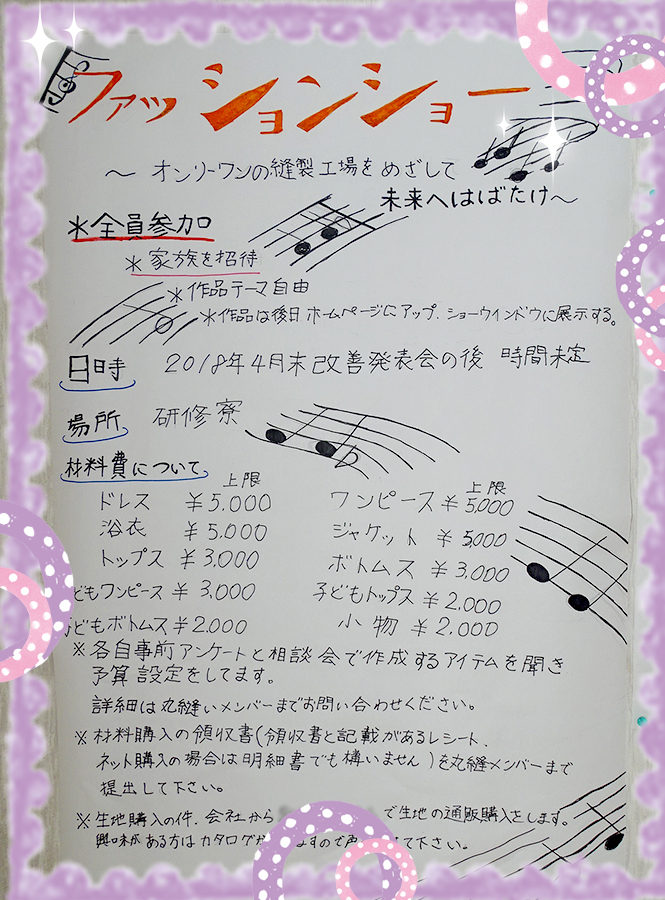 ファッションショー
～ オンリーワンの縫製工場をめざして
未来へはばたけ～
＊全員参加
＊家族を招待
＊作品テーマ自由
＊作品は後日ホームページにアップ、ショーウインドウに展示する。
日時 2018年4月末改善発表会の後 時間未定
場所 研修寮
材料費について
上限 上限
ドレス ¥5,000 ワンピース ¥5,000
浴衣 ¥5,000 ジャケット ¥5,000
トップス ¥3,000 ボトムス ¥3,000
どもワンピース ¥3,000 子どもトップス ¥2,000
どもボトムス ¥2,000 小物 ¥2,000
※各自事前アンケートと相談会で作成するアイテムを聞き
予算設定をしてます。
詳細は丸縫いメンバーまでお問い合わせください。
※材料購入の領収書(領収書と記載があるレシート、
ネット購入の場合は明細書でも構いません)を丸縫メンバーまで
提出して下さい。
※生地購入の件、会社から で生地の通販購入をします。
興味がある方はカタログが ますので声 て下さい。